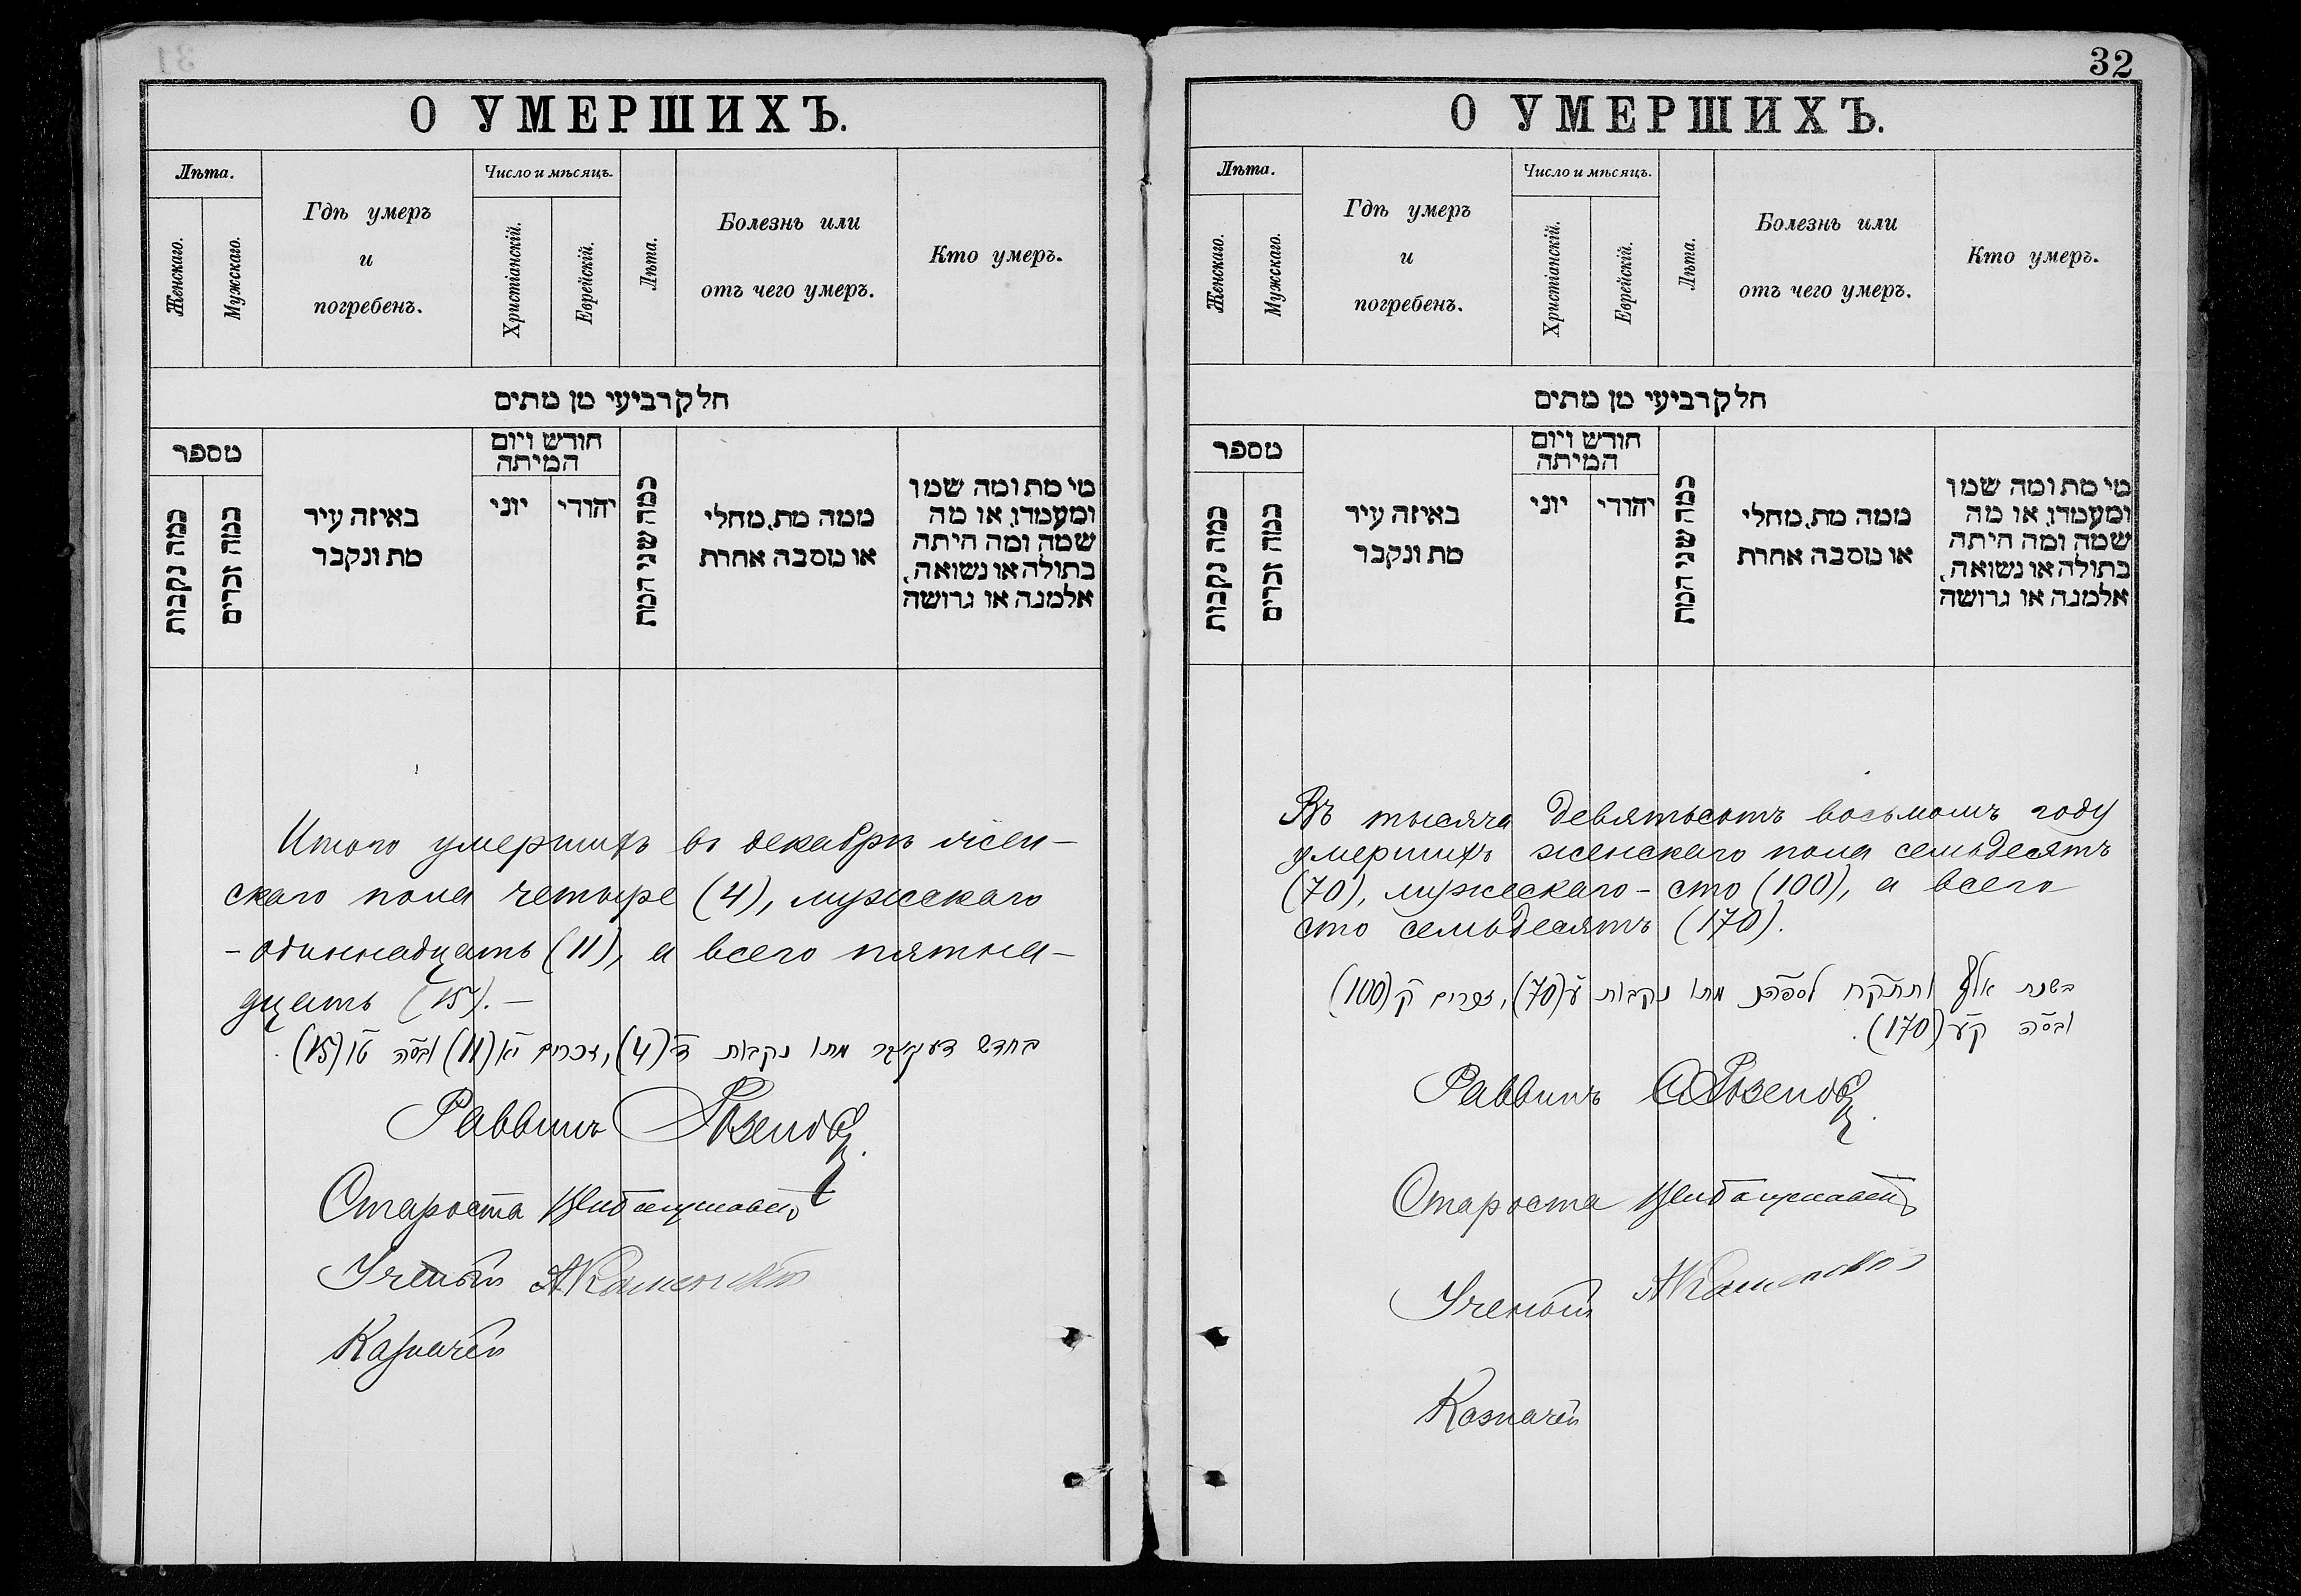 О УМЕРШИХЪ.
Лѣта.
Женскаго.
Мужскаго.
Гдѣ умеръ
и
погребенъ.
Число и мѣсяцъ.
Христіанскій.
Еврейскій.
Лѣта.
Болезнь или
отъ чего умеръ.
Кто умеръ.
חלק רביעי מן מתים
מספר
כמה נקבות
כמה זכרים
באיזה עיר
מת ונקבר
חודש ויום
המיתה
יוני
יהודי
כמה שני המת
ממה מת, מחלי
או מסבה אחרת
מי מת ומה שמו
ומעמדו, או מה
שמה ומה היתה
בתולה או נשואה,
אלמנה או גרושה
Итого умершихъ въ декабрѣ жен-
скаго пола четыре (4), мужескаго
- одиннадцать (11), а всего пятна-
дцать (15). -
בחדש דעקאבר מתו נקבות ד׳ (4), זכרים יא (11) ובס״ה טו (15).
Раввинъ
Староста
Ученый
Казначей
32
О УМЕРШИХЪ.
Лѣта.
Женскаго.
Мужскаго.
Гдѣ умеръ
и
погребенъ.
Число и мѣсяцъ.
Христіанскій.
Еврейскій.
Лѣта.
Болезнь или
отъ чего умеръ.
Кто умеръ.
חלק רביעי מן מתים
מספר
כמה נקבות
כמה זכרים
באיזה עיר
מת ונקבר
חודש ויום
המיתה
יוני
יהודי
כמה שני המת
ממה מת, מחלי
או מסבה אחרת
מי מת ומה שמו
ומעמדו, או מה
שמה ומה היתה
בתולה או נשואה,
אלמנה או גרושה
Въ тысяча девятьсотъ восьмомъ году
умершихъ женскаго пола семьдесятъ
(70), мужескаго - сто (100), а всего
сто семьдесятъ (170).
בשנת אלף ותתקח למספרם מתו נקבות ע׳ (70), זכרים ק׳ (100)
ובס״ה ק״ע (170).
Раввинъ
Староста
Ученый
Казначей